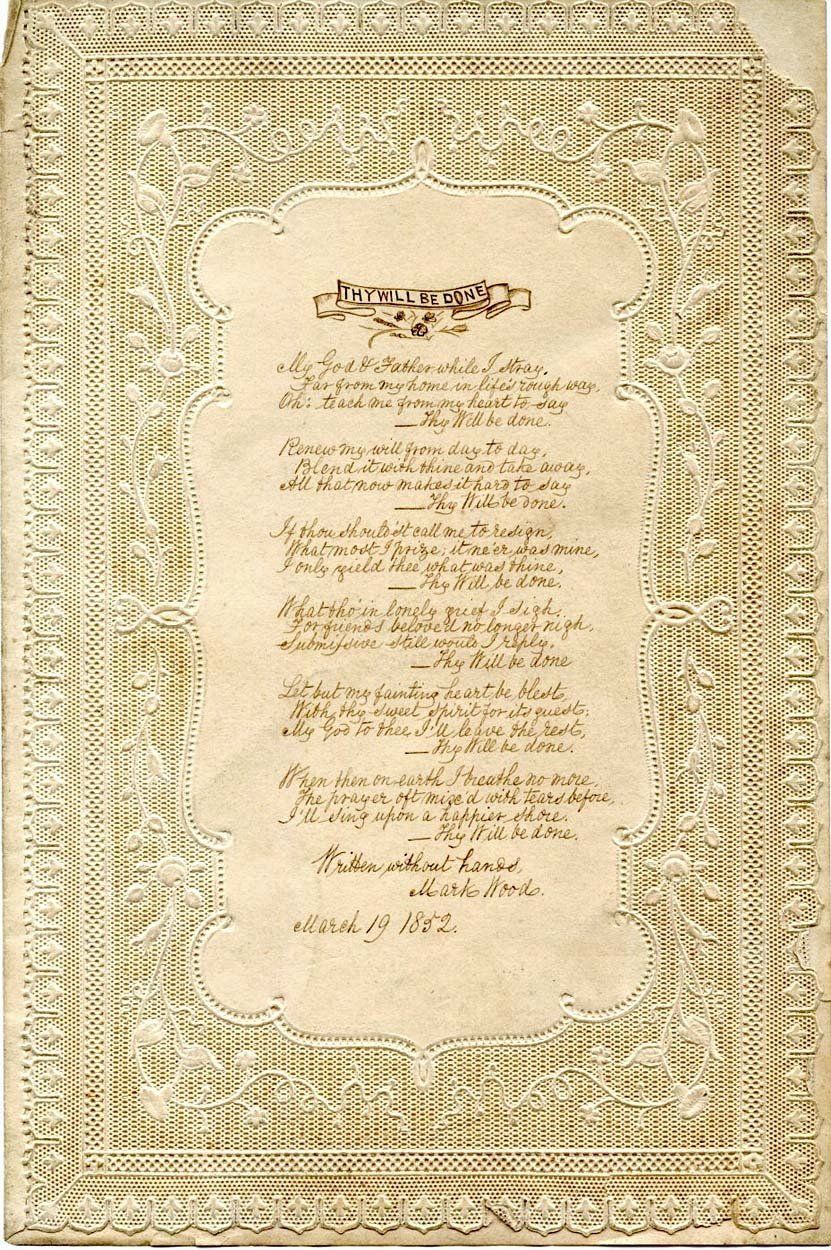 THY WILL BE DONE
My God & Father while I stray,
Far from my home in life's rough way,
Oh! teach me from my heart to say
— Thy Will be done.
Renew my will from day to day,
Blend it with thine and take away,
All that now makes it hard to say
— Thy Will be done.
If thou should'st call me to resign,
What most I prize; it ne'er was mine,
I only yield thee what was thine,
— Thy Will be done.
What tho' in lonely grief I sigh,
For friends beloved no longer nigh,
Submissive still would I reply,
— Thy Will be done
Let but my fainting heart be blest,
With thy sweet spirit for its guest;
My God to thee I'll leave the rest,
— Thy Will be done.
When then on earth I breathe no more,
The prayer oft mixe'd with tears before,
I'll sing upon a happier shore.
— Thy Will be done.
Written without hands,
Mark Wood.
March 19 1852.